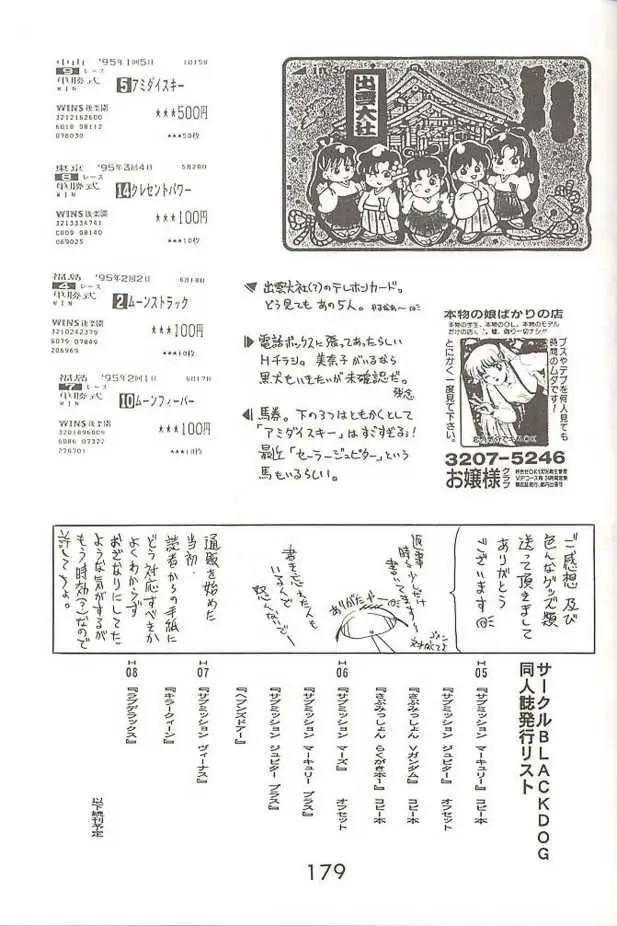 中山 '95年1回5日 1月15日
9 レース
単勝式 5 アミダイスキー
WIN
WINS後楽園 ★★★500円
3212162600
6018 08112
078030 ★★★50枚
東京 '95年3回4日 5月28日
8 レース
単勝式 14 クレセントパワー
WIN
WINS後楽園 ★★★100円
3213334741
C809 08140
069025 ★★★10枚
福島 '95年2回2日 6月18日
4 レース
単勝式 2 ムーンストラック
WIN
WINS後楽園 ★★★100円
3210242379
6079 07849
206969 ★★★10枚
福島 '95年2回1日 6月17日
7 レース
単勝式 10 ムーンフィーバー
WIN
WINS後楽園 ★★★100円
3201096009
6086 07322
276701 ★★★10枚
出雲大社
出雲大社(?)のテレホンカード。
どう見てもあの5人。
電話ボックスに張ってあったらしい
Hチラシ。美奈子がいるなら
黒犬もいきたいが未確認だ。
残念
馬券。下の3つはともかくとして
「アミダイスキー」はすごすぎる!
最近「セーラージュピター」という
馬もいるらしい。
本物の娘ばかりの店
本物の学生、本物のOL、本物のモデル
ブスやデブを何人見ても
時間のムダです!
とにかく一度見て下さい。
3207-5246
お嬢様クラブ
ご感想 及び
色んなグッズ類
送って頂きまして
ありがとう
ございます
返事
時々少しだけ
書いてますー
ゴメン
書き忘れた人も
いるんで
怒んないでー
ありがたや
通販を始めた
当初、
読者からの手紙に
どう対応すべきか
よくわからず
おざなりにしてた
ような気がするが
もう時効(?)なので
許してちょ。
サークルBLACKDOG
同人誌発行リスト
H05 『サブミッション マーキュリー』 コピー本
『サブミッション ジュピター』 オフセット
『さぶみっしょん Vガンダム』 コピー本
『さぶみっしょん らくがきホー』 コピー本
H06 『サブミッション マーズ』 オフセット
『サブミッション マーキュリー プラス』
『サブミッション ジュピター プラス』
『ヘブンズドアー』
H07 『サブミッション ヴィーナス』
『キラークィーン』
H08 『ラブデラックス』
以下続刊予定
179